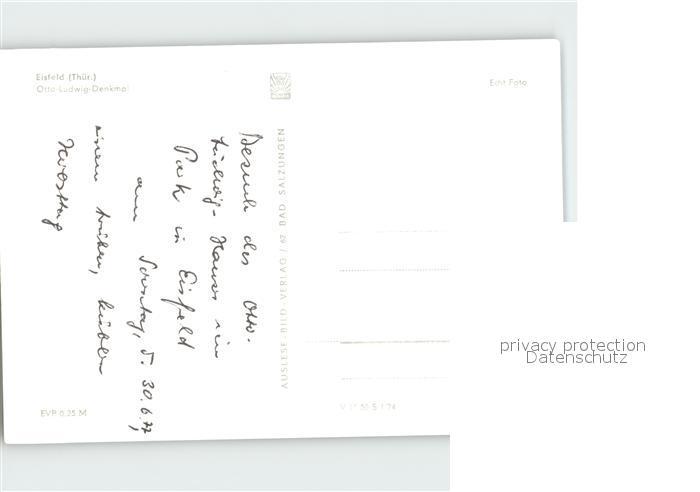 Eisfeld (Thür.)
Otto-Ludwig-Denkmal
Echt Foto
Besuch des Otto-
Ludwig-Hauses im
Park in Eisfeld
am Sonntag, d. 30.6.77,
einem trüben, kühlen
AUSLESE-BILD-VERLAG / 29 BAD SALZUNGEN
EVP 0,25 M
V 11 50 S 1/74
privacy protection
Datenschutz